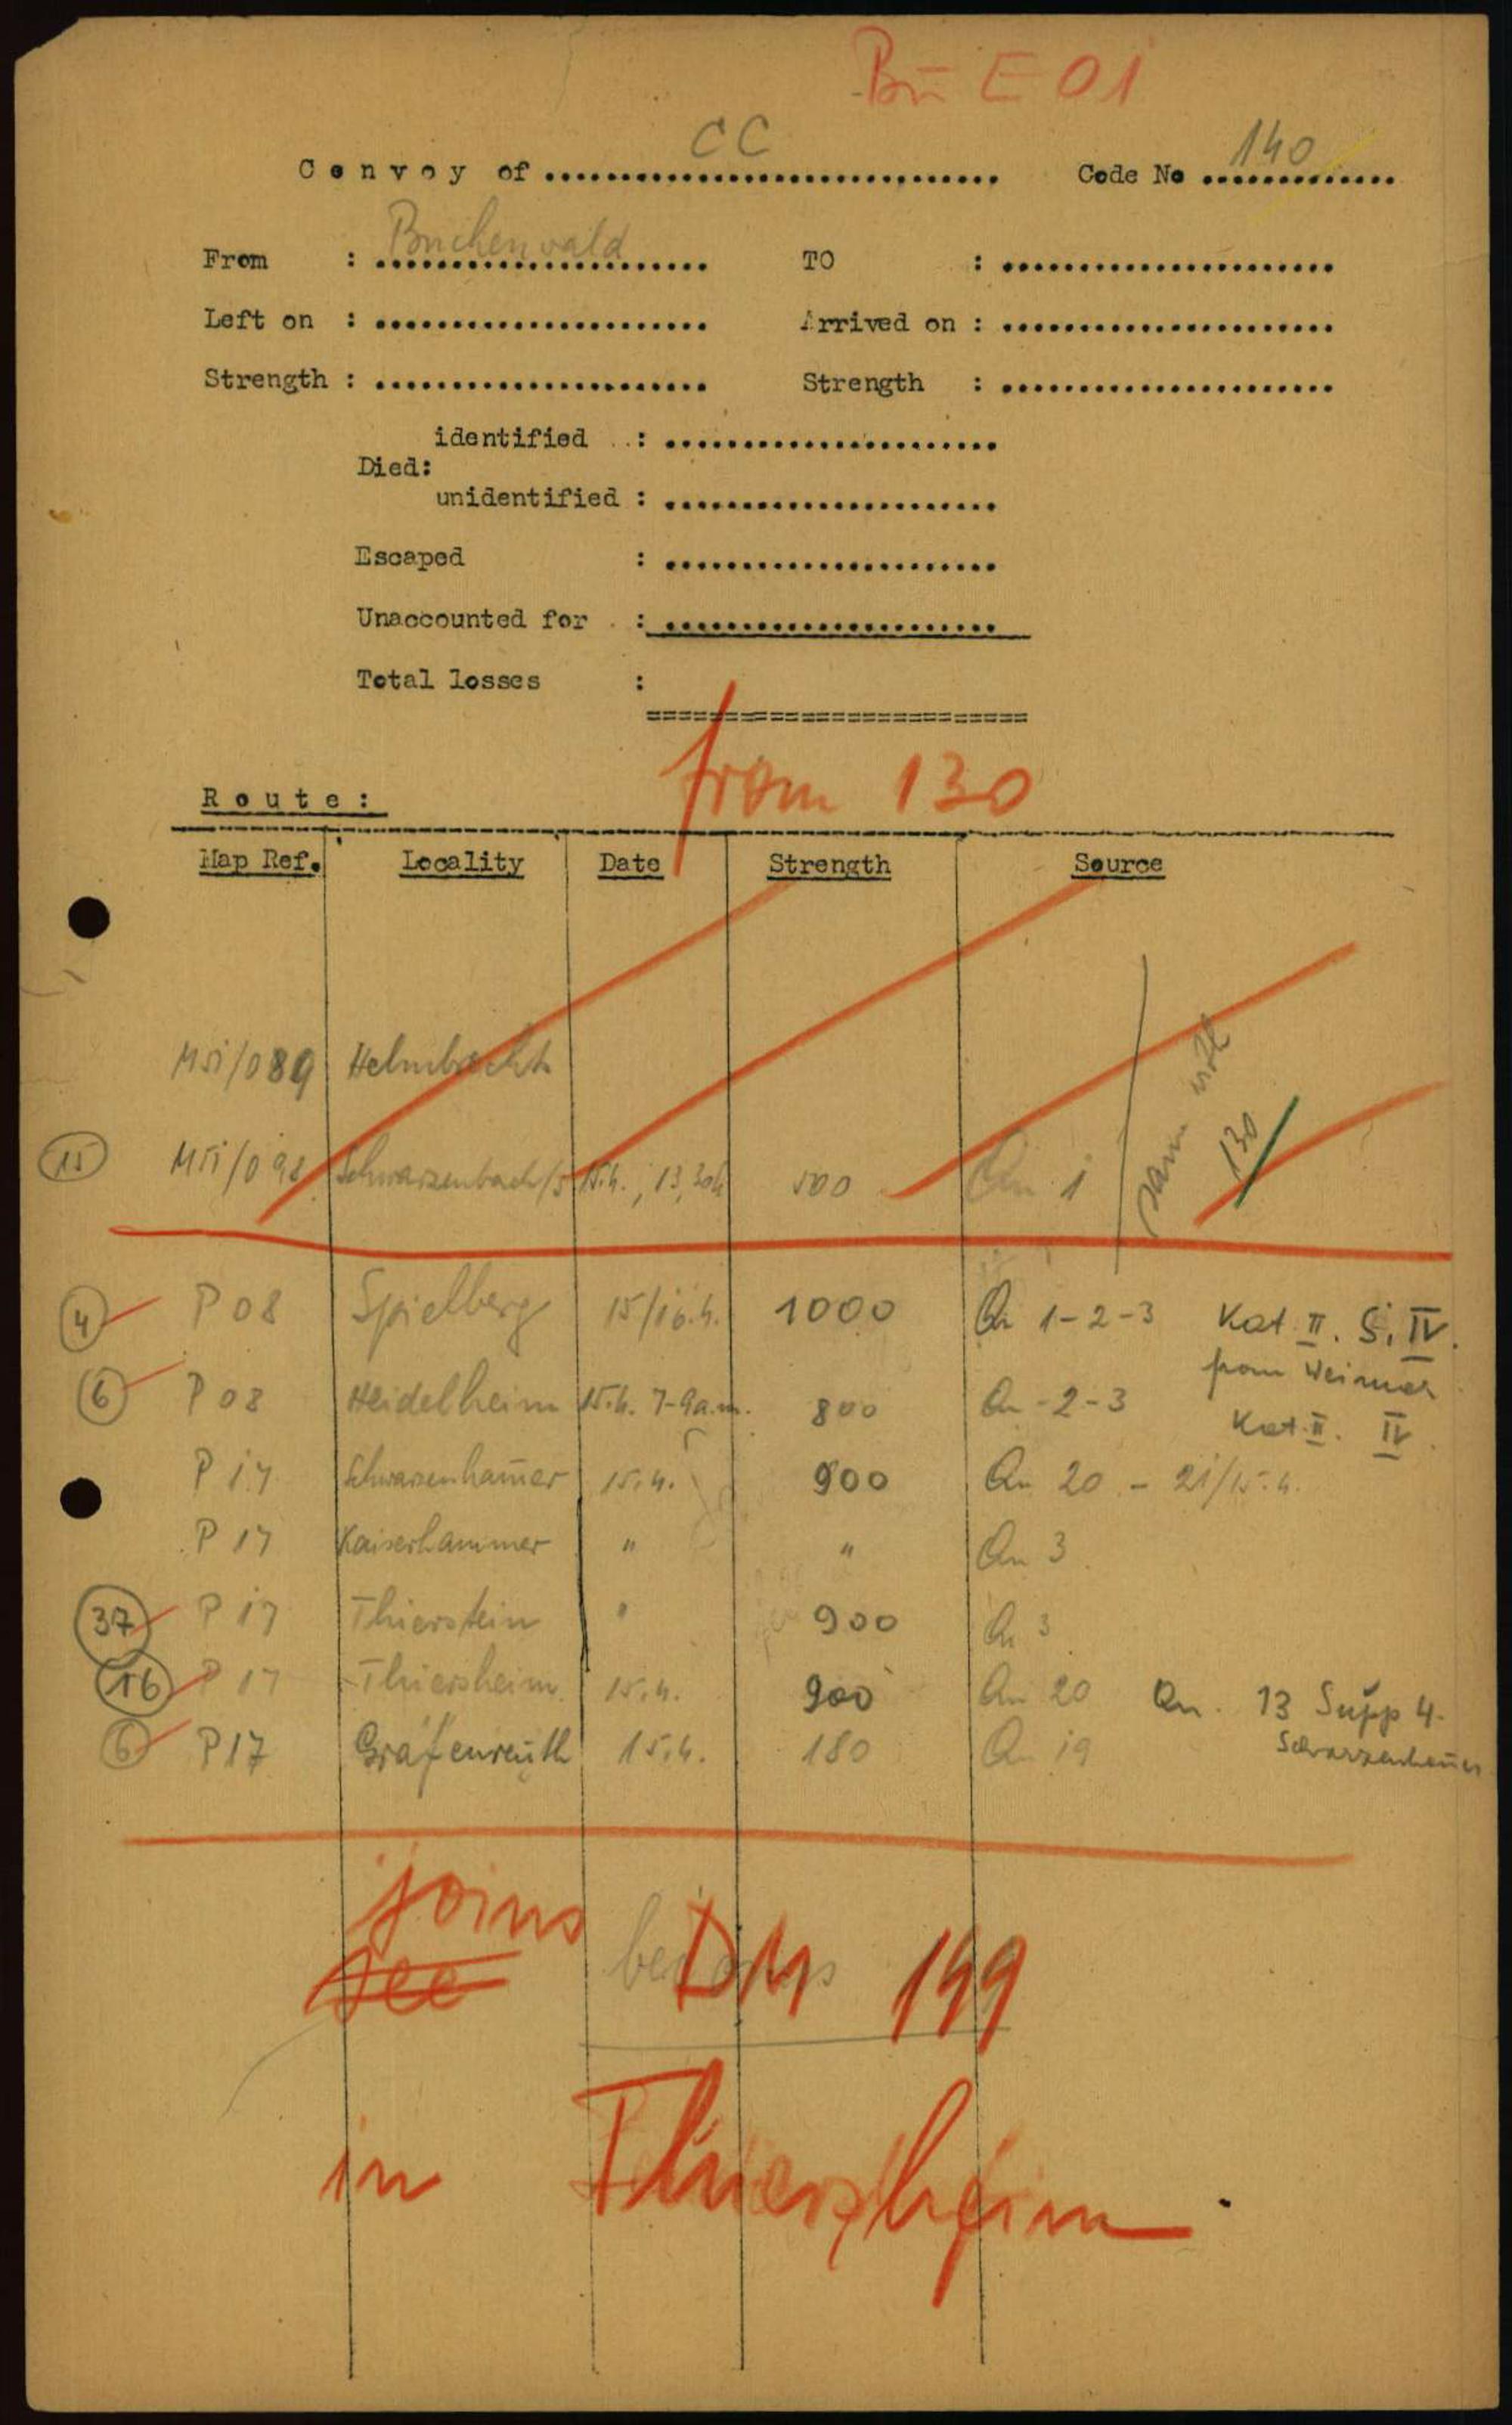 Bu E 01
Convoy of CC Code No 140
From : Buchenwald TO :
Left on : Arrived on :
Strength : Strength :
identified :
Died:
unidentified :
Escaped :
Unaccounted for :
Total losses :
from 130
Route:
Map Ref. Locality Date Strength Source
089 Helmbrecht
15 Schwarzenbach/S 15.4., 13,30h 500 Qu 1
130
4 P 08 Spielberg 15/16.4. 1000 Qu 1-2-3 Kat II. S. IV.
from Weimar
6 P 08 Heidelheim 15.4. 7-9a.m. 800 Qu - 2-3
Kat. II. IV.
P 17 Schwarzenhammer 15.4. 900 Qu 20 - 21/15.4.
P 17 Kaiserhammer " " Qu 3
37 P 17 Thierstein " 900 Qu 3
16 P 17 Thiersheim 15.4. 900 Qu 20 Qu. 13 Supp 4.
Schwarzenhammer
6 P17 Grafenreuth 15.4. 180 Qu 19
joins
see DM 149
in Thiersheim